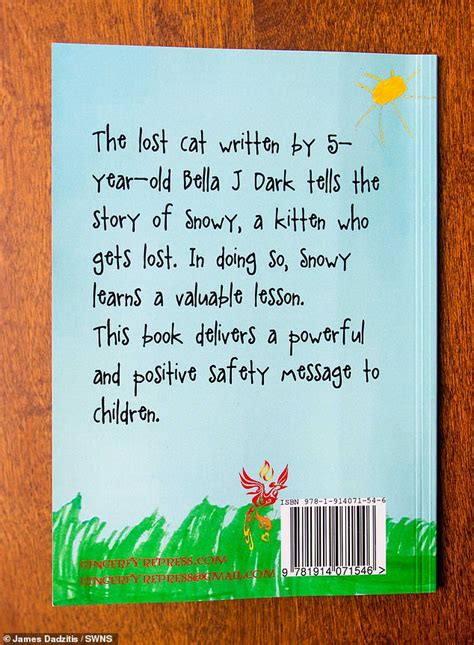 The lost cat written by 5-
year-old Bella J Dark tells the
story of Snowy, a kitten who
gets lost. In doing so, Snowy
learns a valuable lesson.
This book delivers a powerful
and positive safety message to
children.
ISBN 978-1-914071-54-6
GINGERFYREPRESS.COM
GINGERFYREPRESS@GMAIL.COM
9 781914 071546 >
© James Dadzitis / SWNS